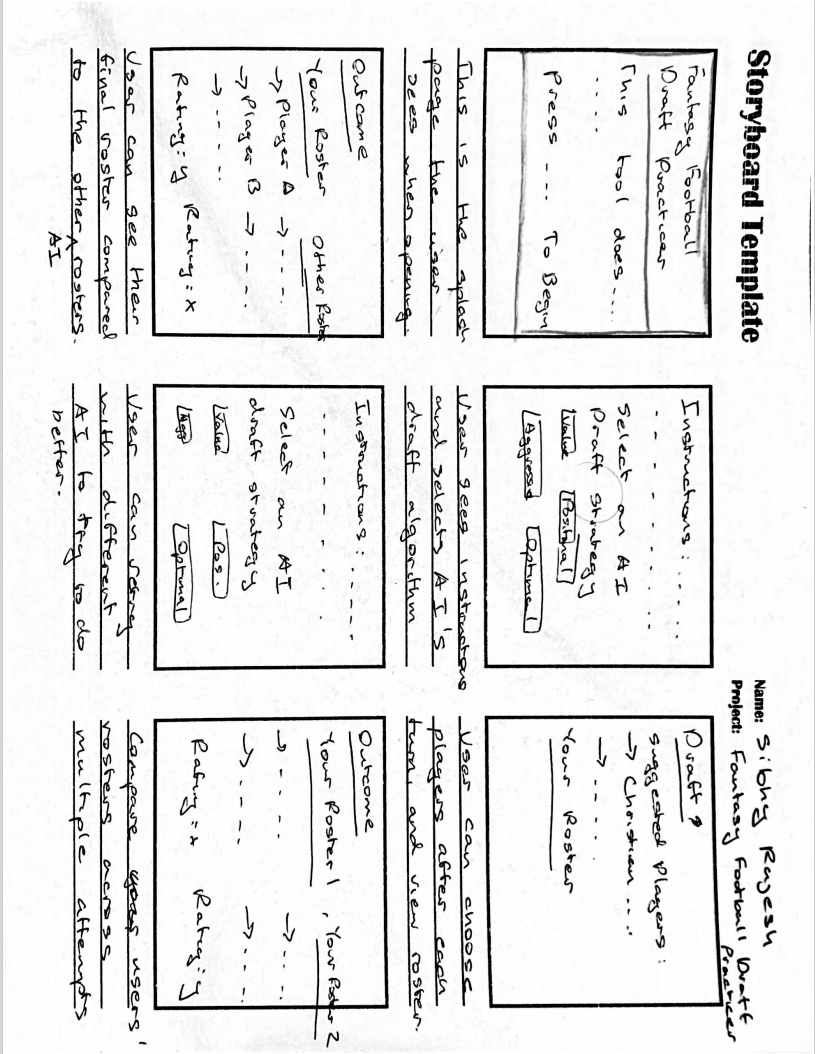 Storyboard Template
Name: Sibhy Rajesh
Project: Fantasy Football Draft
Practicer
Fantasy Football
Draft Practicer
This tool does....
....
Press --- To Begin
This is the splash
page the user
sees when opening.
Instructions: .....
. . . . . . . . .
Select an AI
Draft Strategy
Value Positional
Aggressive Optimal
User sees instructions
and selects AI's
draft algorithm
Draft
Suggested Players:
→ Christian ...
→ - - - .
Your Roster
User can choose
players after each
turn and view roster.
Outcome
Your Roster Other Roster
→ Player A → - - - .
→ Player B → - - - .
→ - - - -
Rating: y Rating: x
User can see their
final roster compared
to the other AI rosters.
Instructions: .....
. . . . . . . . .
Select an AI
draft strategy
Value Pos.
Agg Optimal
User can retry
with different
AI to try to do
better.
Outcome
Your Roster 1, Your Roster 2
→ - - - . → - - - .
→ - - - . → - - - .
Rating: x Rating: y
Compare users'
rosters across
multiple attempts